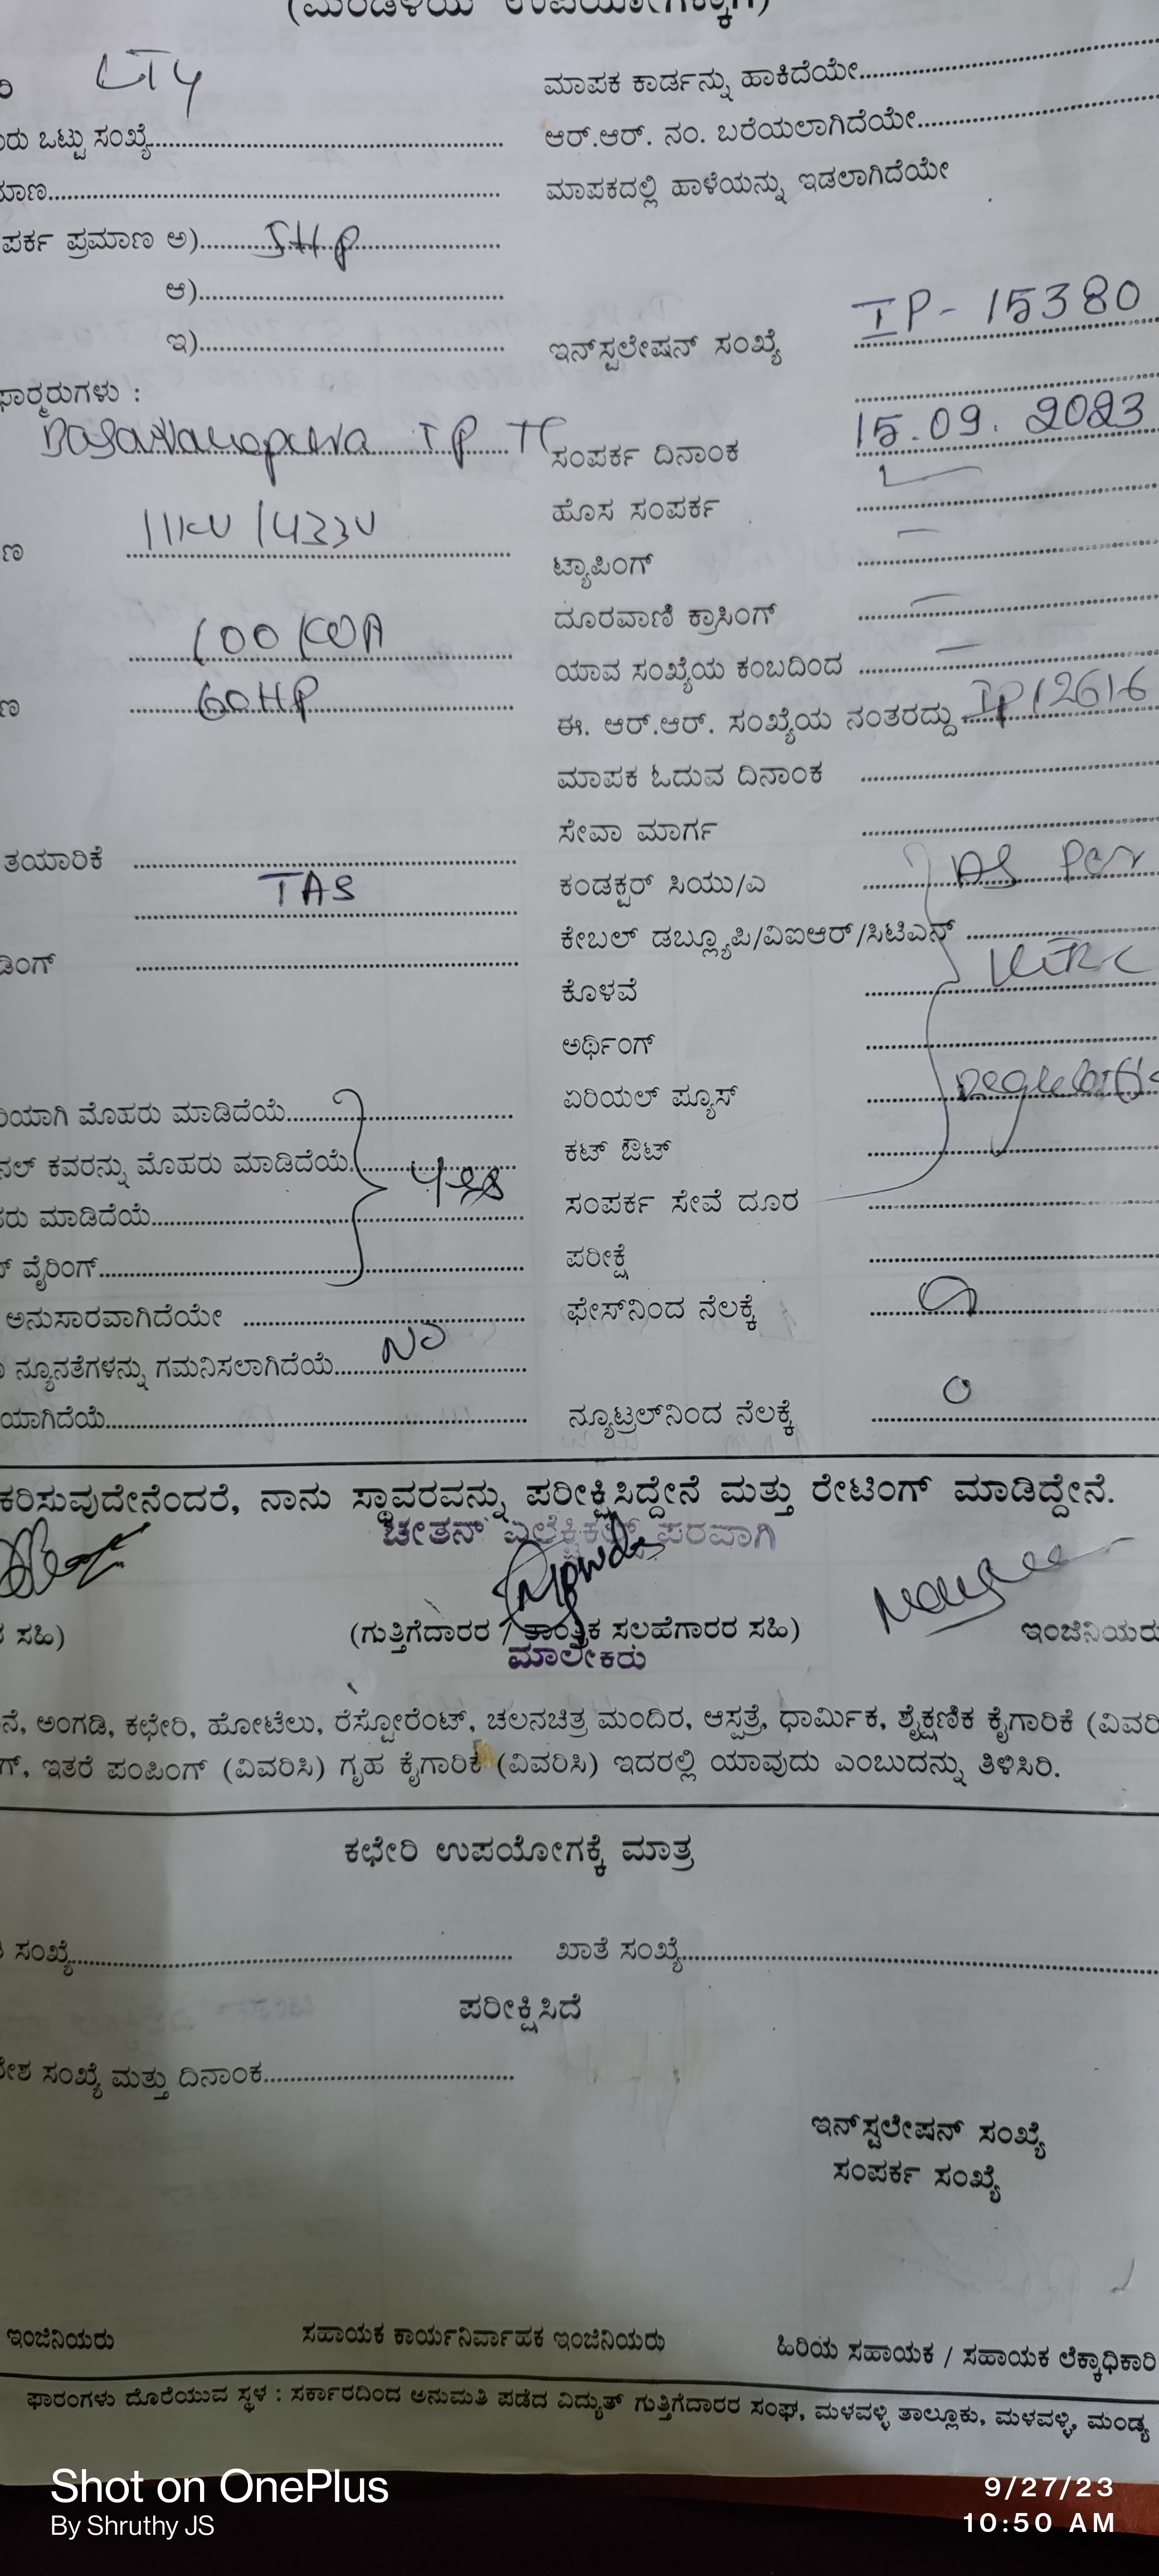 (ಮಂಡಳಿಯ ಉಪಯೋಗಕ್ಕಾಗಿ)
LT4
ಮಾಪಕ ಕಾರ್ಡನ್ನು ಹಾಕಿದೆಯೇ
ಒಟ್ಟು ಸಂಖ್ಯೆ
ಆರ್.ಆರ್. ನಂ. ಬರೆಯಲಾಗಿದೆಯೇ
ಮಾಪಕದಲ್ಲಿ ಹಾಳೆಯನ್ನು ಇಡಲಾಗಿದೆಯೇ
ಪ್ರಮಾಣ ಅ) 5HP
ಆ)
ಇ)
ಇನ್‌ಸ್ಟಲೇಷನ್ ಸಂಖ್ಯೆ IP-15380
IP TC
ಸಂಪರ್ಕ ದಿನಾಂಕ 15.09.2023
ಹೊಸ ಸಂಪರ್ಕ
11KV/433V
ಟ್ಯಾಪಿಂಗ್ –
ದೂರವಾಣಿ ಕ್ರಾಸಿಂಗ್ –
100 KVA
ಯಾವ ಸಂಖ್ಯೆಯ ಕಂಬದಿಂದ –
60HP
ಈ. ಆರ್.ಆರ್. ಸಂಖ್ಯೆಯ ನಂತರದ್ದು IP12616
ಮಾಪಕ ಓದುವ ದಿನಾಂಕ
ಸೇವಾ ಮಾರ್ಗ
ತಯಾರಿಕೆ
TAS
ಕಂಡಕ್ಟರ್ ಸಿಯು/ಎ As Per
ಕೇಬಲ್ ಡಬ್ಲ್ಯೂಪಿ/ವಿಐಆರ್/ಸಿಟಿಎಸ್
ಕೊಳವೆ
ಅರ್ಥಿಂಗ್
ಏರಿಯಲ್ ಫ್ಯೂಸ್
ಮೊಹರು ಮಾಡಿದೆಯೆ
ಕಟ್ ಔಟ್
ಕವರನ್ನು ಮೊಹರು ಮಾಡಿದೆಯೆ Yes
ಮಾಡಿದೆಯೆ
ಸಂಪರ್ಕ ಸೇವೆ ದೂರ
ವೈರಿಂಗ್
ಪರೀಕ್ಷೆ
ಅನುಸಾರವಾಗಿದೆಯೇ
ಫೇಸ್‌ನಿಂದ ನೆಲಕ್ಕೆ
ನ್ಯೂನತೆಗಳನ್ನು ಗಮನಿಸಲಾಗಿದೆಯೆ NO
ಯಾಗಿದೆಯೆ
ನ್ಯೂಟ್ರಲ್‌ನಿಂದ ನೆಲಕ್ಕೆ 0
ಕರಿಸುವುದೇನೆಂದರೆ, ನಾನು ಸ್ಥಾವರವನ್ನು ಪರೀಕ್ಷಿಸಿದ್ದೇನೆ ಮತ್ತು ರೇಟಿಂಗ್ ಮಾಡಿದ್ದೇನೆ.
ಚೇತನ್ ಎಲೆಕ್ಟ್ರಿಕಲ್ಸ್ ಪರವಾಗಿ
ಸಹಿ)
(ಗುತ್ತಿಗೆದಾರರ / ತಾಂತ್ರಿಕ ಸಲಹೆಗಾರರ ಸಹಿ)
ಇಂಜಿನಿಯರು
ಮಾಲೀಕರು
ನೆ, ಅಂಗಡಿ, ಕಛೇರಿ, ಹೋಟೆಲು, ರೆಸ್ಟೋರೆಂಟ್, ಚಲನಚಿತ್ರ ಮಂದಿರ, ಆಸ್ಪತ್ರೆ, ಧಾರ್ಮಿಕ, ಶೈಕ್ಷಣಿಕ ಕೈಗಾರಿಕೆ (ವಿವರಿ
ಗ್, ಇತರೆ ಪಂಪಿಂಗ್ (ವಿವರಿಸಿ) ಗೃಹ ಕೈಗಾರಿಕೆ (ವಿವರಿಸಿ) ಇದರಲ್ಲಿ ಯಾವುದು ಎಂಬುದನ್ನು ತಿಳಿಸಿರಿ.
ಕಛೇರಿ ಉಪಯೋಗಕ್ಕೆ ಮಾತ್ರ
ಸಂಖ್ಯೆ
ಖಾತೆ ಸಂಖ್ಯೆ
ಪರೀಕ್ಷಿಸಿದೆ
ಸಂಖ್ಯೆ ಮತ್ತು ದಿನಾಂಕ
ಇನ್‌ಸ್ಟಲೇಷನ್ ಸಂಖ್ಯೆ
ಸಂಪರ್ಕ ಸಂಖ್ಯೆ
ಇಂಜಿನಿಯರು
ಸಹಾಯಕ ಕಾರ್ಯನಿರ್ವಾಹಕ ಇಂಜಿನಿಯರು
ಹಿರಿಯ ಸಹಾಯಕ / ಸಹಾಯಕ ಲೆಕ್ಕಾಧಿಕಾರಿ
ಫಾರಂಗಳು ದೊರೆಯುವ ಸ್ಥಳ : ಸರ್ಕಾರದಿಂದ ಅನುಮತಿ ಪಡೆದ ವಿದ್ಯುತ್ ಗುತ್ತಿಗೆದಾರರ ಸಂಘ, ಮಳವಳ್ಳಿ ತಾಲ್ಲೂಕು, ಮಳವಳ್ಳಿ, ಮಂಡ್ಯ
Shot on OnePlus
By Shruthy JS
9/27/23
10:50 AM